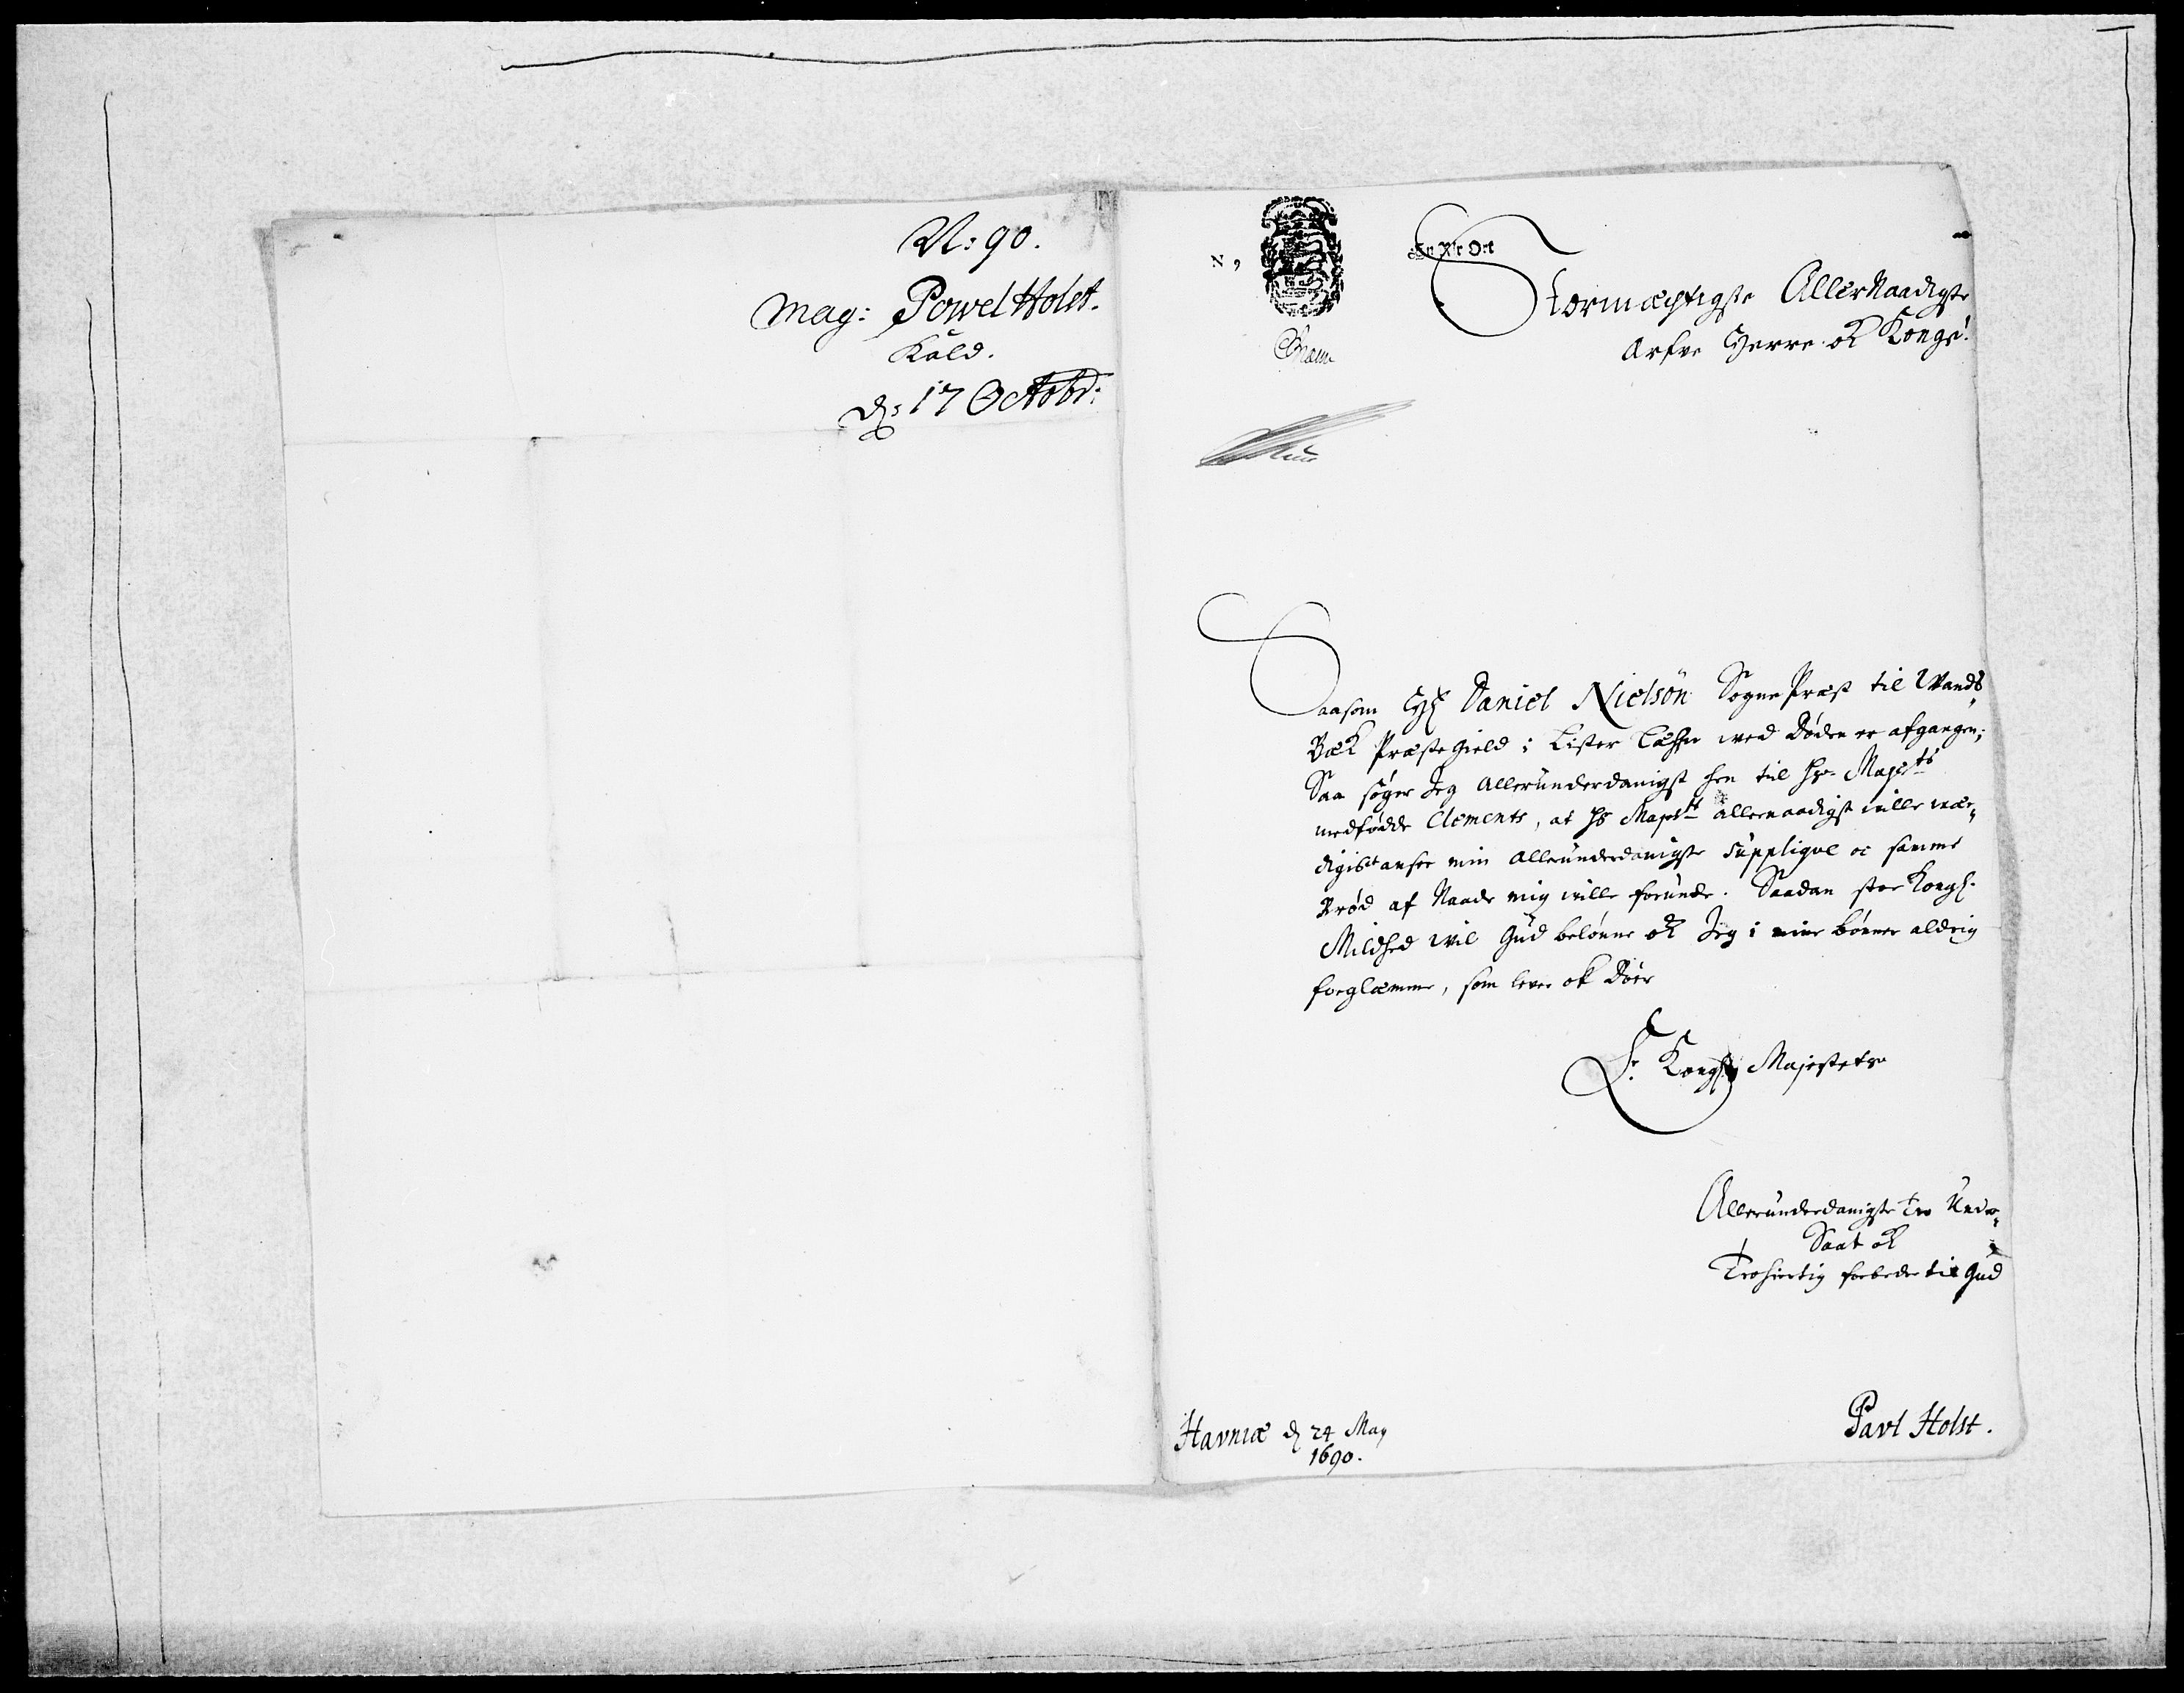 N: 90.
Mag: Powel Holst.
Kald.
d: 17 Octobr:
N. 9
En X't Ort
Stormæchtigste Aller Naadigste
Arfve Herre ok Konge!
Saasom Hr Daniel Nielsøn Sogne Præst til Wands
Bæk Præstegield i Lister Læhn wed Døden er afgangen;
Saa søger Jeg allerunderdanigst hen til hs Majts
medfødde Clements, at hs Majts allernaadigst wille wær-
digist ansee min allerunderdanigste Supplique oc samme
Brød af Naade mig wille forunde. Saadan stor Kongl.
Mildhed wil Gud belønne ok Jeg i mine bønner aldrig
forglemme, som lever ok Døer
Er. Kongl: Majestets
Allerunderdanigste Tro Under-
Saat ok
Trohiertig forbeder til Gud
Pavl Holst.
Havniæ d 24 May
1690.